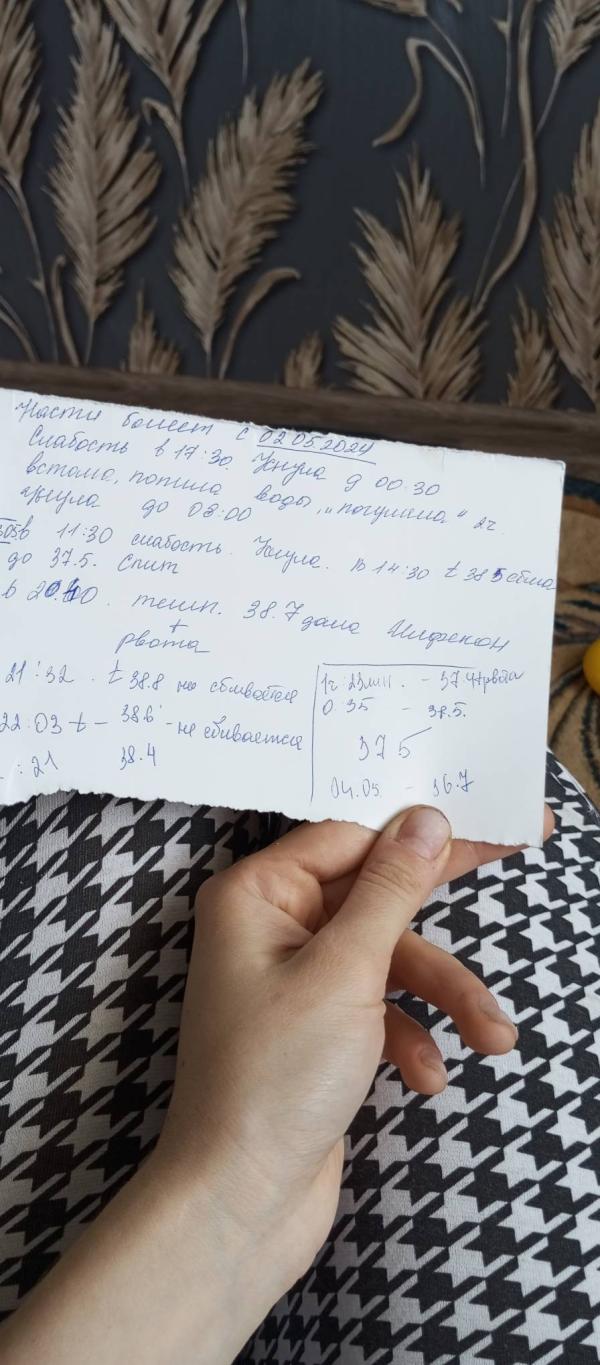 Настя болеет с 02 05 2024
Слабость в 17:30. Уснула д 00:30
встала, попила воды, „погуляла“ 2ч.
уснула до 03:00
в 11:30 слабость. Уснула. В 14:30 t 38 5 сбила
до 37.5. Спит
в 20:40. темп. 38.7 дала Цифекон
+
рвота
21:32. t 38.8 не сбивается
22:03 t - 38.6 - не сбивается
:21 38.4
1ч:23мин. - 37.4 + рвота
0:35 - 38.5.
37 5
04.05 - 36.7